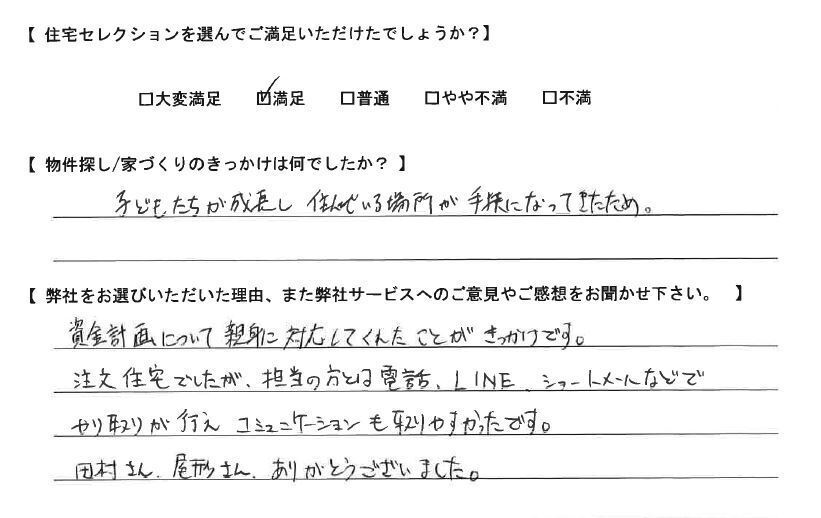 【 住宅セレクションを選んでご満足いただけたでしょうか？】
□大変満足 ☑満足 □普通 □やや不満 □不満
【 物件探し/家づくりのきっかけは何でしたか？ 】
子どもたちが成長し 住んでいる場所が 手狭になってきたため。
【 弊社をお選びいただいた理由、また弊社サービスへのご意見やご感想をお聞かせ下さい。 】
資金計画について 親身に対応してくれたことが きっかけです。
注文住宅でしたが、担当の方とは電話、LINE、ショートメールなどで
やり取りが行え コミュニケーションも取りやすかったです。
田村さん、尾形さん、ありがとうございました。